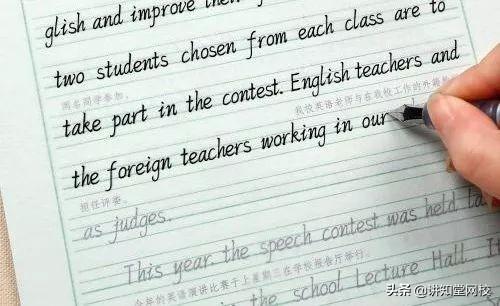 glish and improve
two students chosen from each class are to
两名同学参加。
take part in the contest. English teachers and
我校英语老师与在我校工作的外籍
the foreign teachers working in our
担任评委。
as judges.
This year the speech contest was held
今年的英语演讲比赛于上星期三在学校报告厅举行。
in the school Lecture Hall.
头条 @讲知堂网校